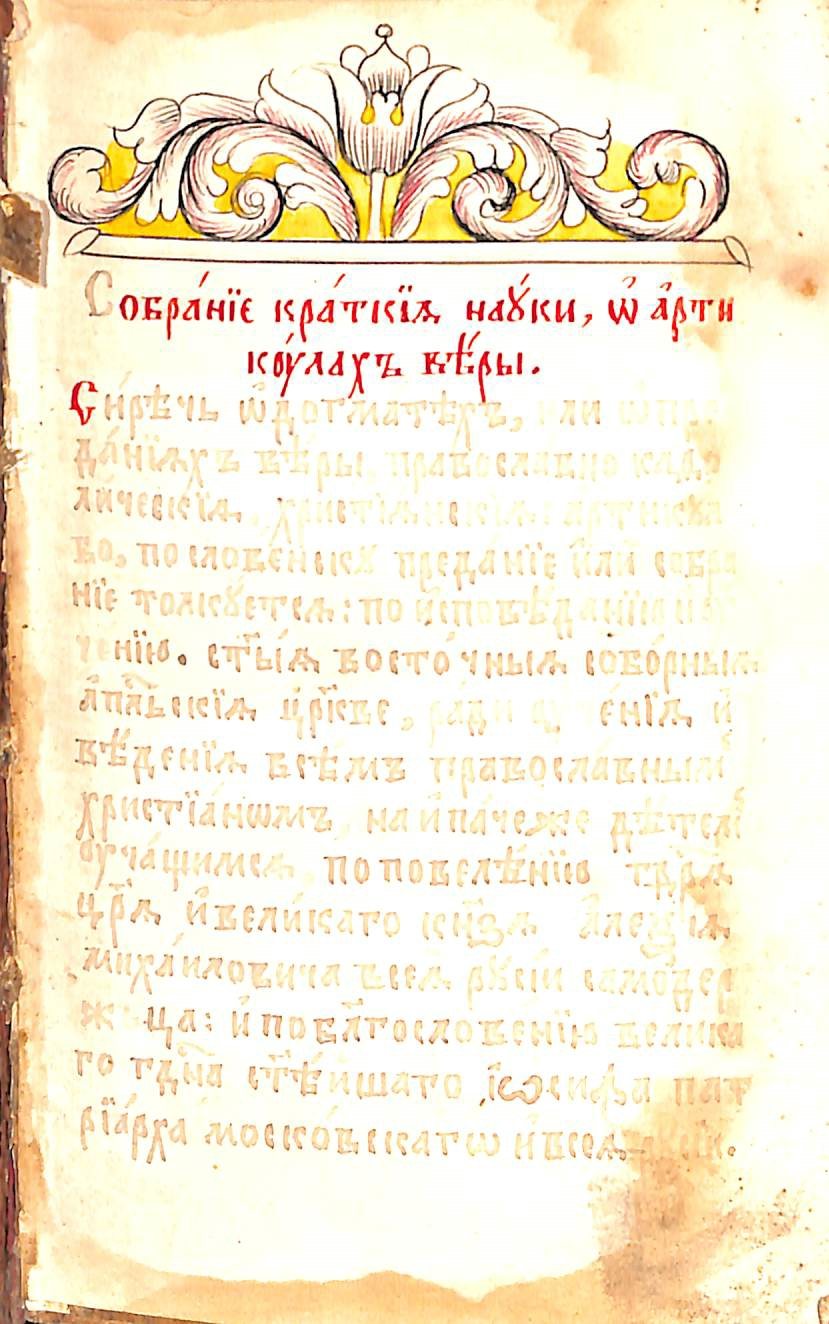 Собра́нїе кра́ткїѧ наꙋ́ки, ѡ҆ а҆рти
ко́улахъ вѣ́ры.
Си́рѣчь ѡ҆ догматѣхъ, или ѡ҆ пре
да́нїѧхъ вѣ́ры, правосла́вно каѳо
ли́ческїѧ, христїѧнскїѧ: артикꙋла
бо, пословѐнскꙋ преда́нїе и҆лѝ собра
нїе толкꙋетсѧ: по и҆сповѣ́данїю и҆
че́нїю. ст҃ы́ѧ восто́чныѧ собо́рныѧ
а҆пⷭ҇льскїѧ цр҃кве, ра́ди ᲂуче́нїѧ и҆
вѣ́денїѧ всѣ́мъ правосла́внымъ
христїа́нѡмъ, наипа́чеже дѣ́темъ
ᲂуча́щимсѧ, по повелѣ́нїю гдⷭ҇рѧ
цр҃ѧ̀ и҆ вели́кагѡ кн҃зѧ А҆леѯі́ѧ
миха́иловича всеѧ̀ рꙋсі́и самоде́р
жца: и҆ по бл҃гословѐнїю вели́ка
го гдⷭ҇на ст҃ѣ́йшаго І҆ѡ́сифа пат
рїа́рха моско́вскагѡ и҆ всеѧ̀